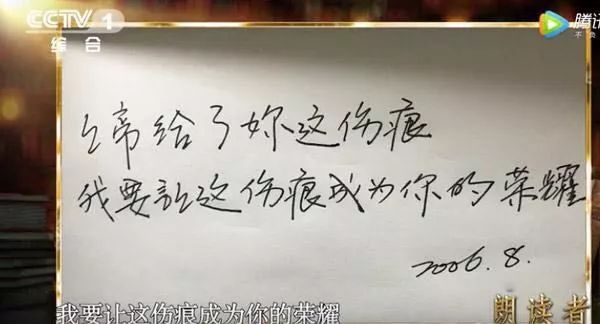 CCTV 1
综合
腾讯
上帝给了妳这伤痕
我要让这伤痕成为你的荣耀
2006.8.
我要让这伤痕成为你的荣耀
朗读者